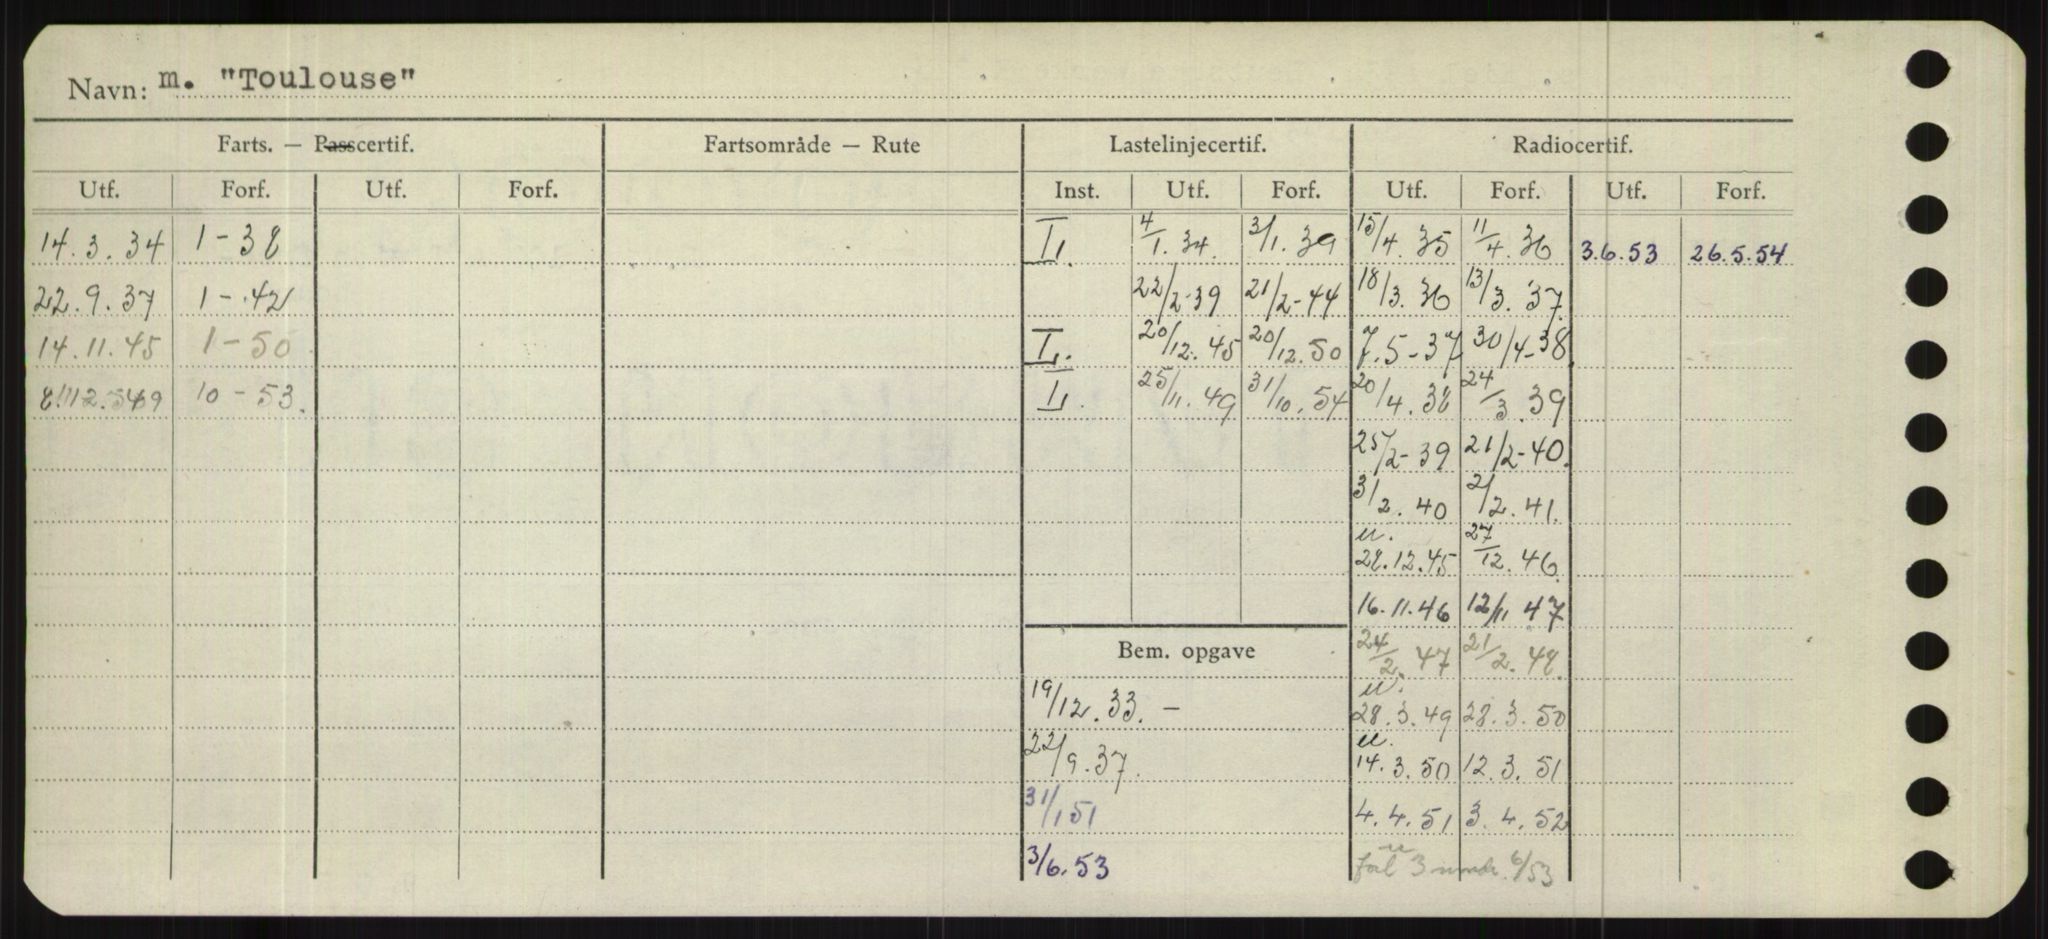 Navn: m. "Toulouse"
Farts. — Passcertif. Fartsområde — Rute Lastelinjecertif. Radiocertif.
Utf. Forf. Utf. Forf. Inst. Utf. Forf. Utf. Forf. Utf. Forf.
14.3.34 1-38 I. 4/1.34. 3/1.39 15/4.35 11/4.36 3.6.53 26.5.54
22.9.37 1-42 22/2-39 21/2-44 18/3.36 13/3.37.
14.11.45 1-50 I. 20/12.45 20/12.50 7.5-37 30/4-38.
10-53. I. 25/11.49 31/10.54 20/4.38 24/3.39
25/2-39 21/2-40.
3/2.40 2/2.41.
u. 28.12.45 27/12.46.
16.11.46 12/11 47
Bem. opgave 24/2.47 21/2.48.
19/12.33.- u. 28.3.49 28.3.50
22/9.37. u. 14.3.50 12.3.51
31/1 51 4.4.51 3.4.52
3/6.53 3 6/53